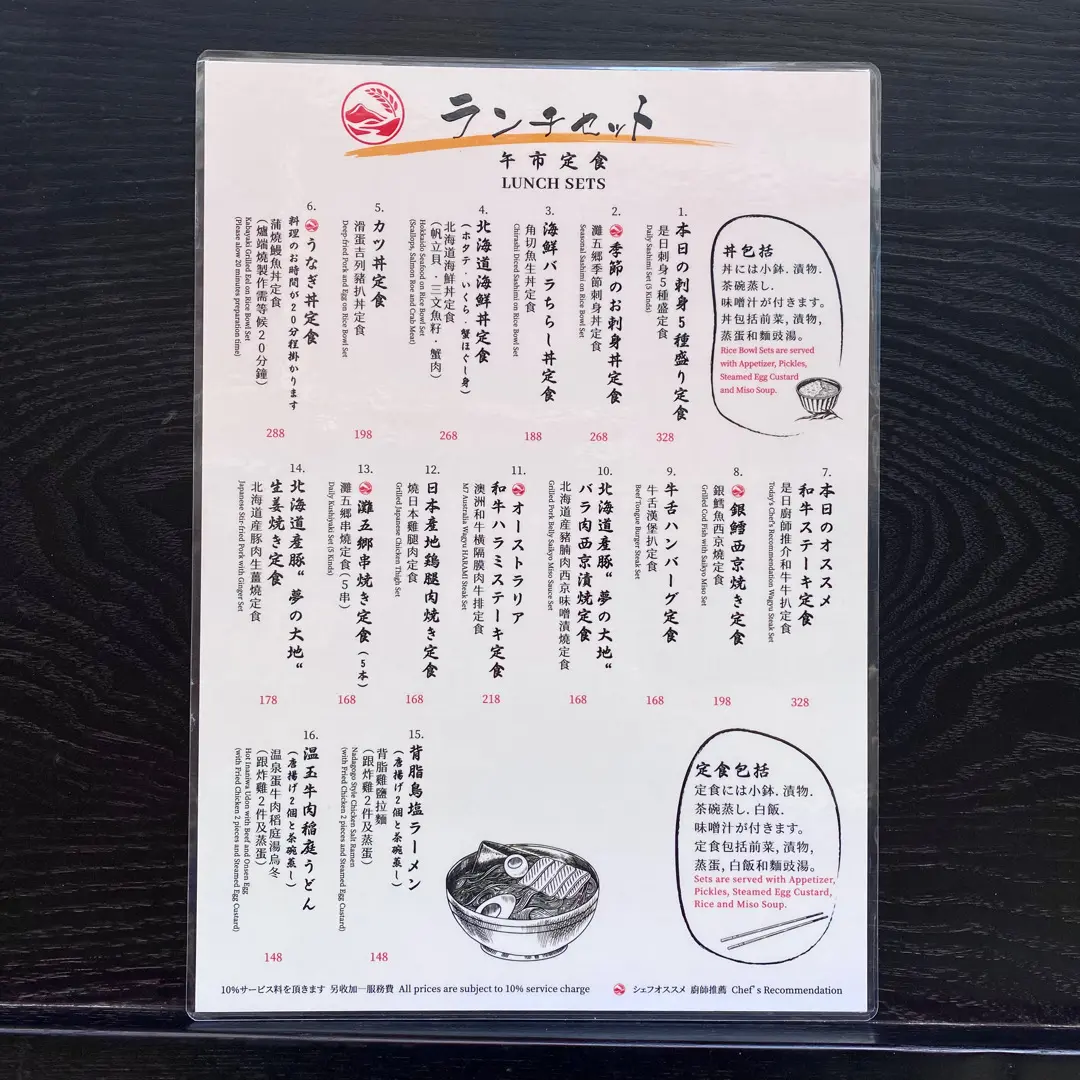 ランチセット
午市定食
LUNCH SETS
丼包括
丼には小鉢.漬物.
茶碗蒸し.
味噌汁が付きます。
丼包括前菜,漬物,
蒸蛋和麵豉湯。
Rice Bowl Sets are served
with Appetizer, Pickles,
Steamed Egg Custard
and Miso Soup.
1.
本日の刺身5種盛り定食
是日刺身5種盛定食
Daily Sashimi Set (5 Kinds)
328
2.
季節のお刺身丼定食
灘五郷季節刺身丼定食
Seasonal Sashimi on Rice Bowl Set
268
3.
海鮮バラちらし丼定食
角切魚生丼定食
Chirashi Diced Sashimi on Rice Bowl Set
188
4.
北海道海鮮丼定食
(ホタテ・いくら・蟹ほぐし身)
北海道海鮮丼定食
(帆立貝・三文魚籽・蟹肉)
Hokkaido Seafood on Rice Bowl Set
(Scallops, Salmon Roe and Crab Meat)
268
5.
カツ丼定食
滑蛋吉列豬扒丼定食
Deep-fried Pork and Egg on Rice Bowl Set
198
6.
うなぎ丼定食
料理のお時間が20分程掛かります
蒲燒鰻魚丼定食
(爐端燒製作需等候20分鐘)
Kabayaki Grilled Eel on Rice Bowl Set
(Please alow 20 minutes preparation time)
288
7.
本日のオススメ
和牛ステーキ定食
是日廚師推介和牛牛扒定食
Today's Chef's Recommendation Wagyu Steak Set
328
8.
銀鱈西京焼き定食
銀鱈魚西京燒定食
Grilled Cod Fish with Saikyo Miso Set
198
9.
牛舌ハンバーグ定食
牛舌漢堡扒定食
Beef Tongue Burger Steak Set
168
10.
北海道産豚“夢の大地“
バラ肉西京漬焼定食
北海道産豬腩肉西京味噌漬燒定食
Grilled Pork Belly Saikyo Miso Sauce Set
168
11.
オーストラリア
和牛ハラミステーキ定食
澳洲和牛橫隔膜肉牛排定食
M7 Australia Wagyu HARAMI Steak Set
218
12.
日本産地鶏腿肉焼き定食
燒日本雞腿肉定食
Grilled Japanese Chicken Thigh Set
168
13.
灘五郷串焼き定食(5本)
灘五郷串燒定食(5串)
Daily Kushiyaki Set (5 Kinds)
168
14.
北海道産豚“夢の大地“
生姜焼き定食
北海道産豚肉生薑燒定食
Japanese Stir-fried Pork with Ginger Set
178
15.
背脂鳥塩ラーメン
(唐揚げ2個と茶碗蒸し)
背脂雞鹽拉麵
(跟炸雞2件及蒸蛋)
Nadagogo Style Chicken Salt Ramen
(with Fried Chicken 2 pieces and Steamed Egg Custard)
148
16.
温玉牛肉稲庭うどん
(唐揚げ2個と茶碗蒸し)
温泉蛋牛肉稻庭湯烏冬
(跟炸雞2件及蒸蛋)
Hot Inaniwa Udon with Beef and Onsen Egg
(with Fried Chicken 2 pieces and Steamed Egg Custard)
148
定食包括
定食には小鉢.漬物.
茶碗蒸し.白飯.
味噌汁が付きます。
定食包括前菜,漬物,
蒸蛋,白飯和麵豉湯。
Sets are served with Appetizer,
Pickles, Steamed Egg Custard,
Rice and Miso Soup.
10%サービス料を頂きます 另收加一服務費 All prices are subject to 10% service charge
シェフオススメ 廚師推薦 Chef's Recommendation